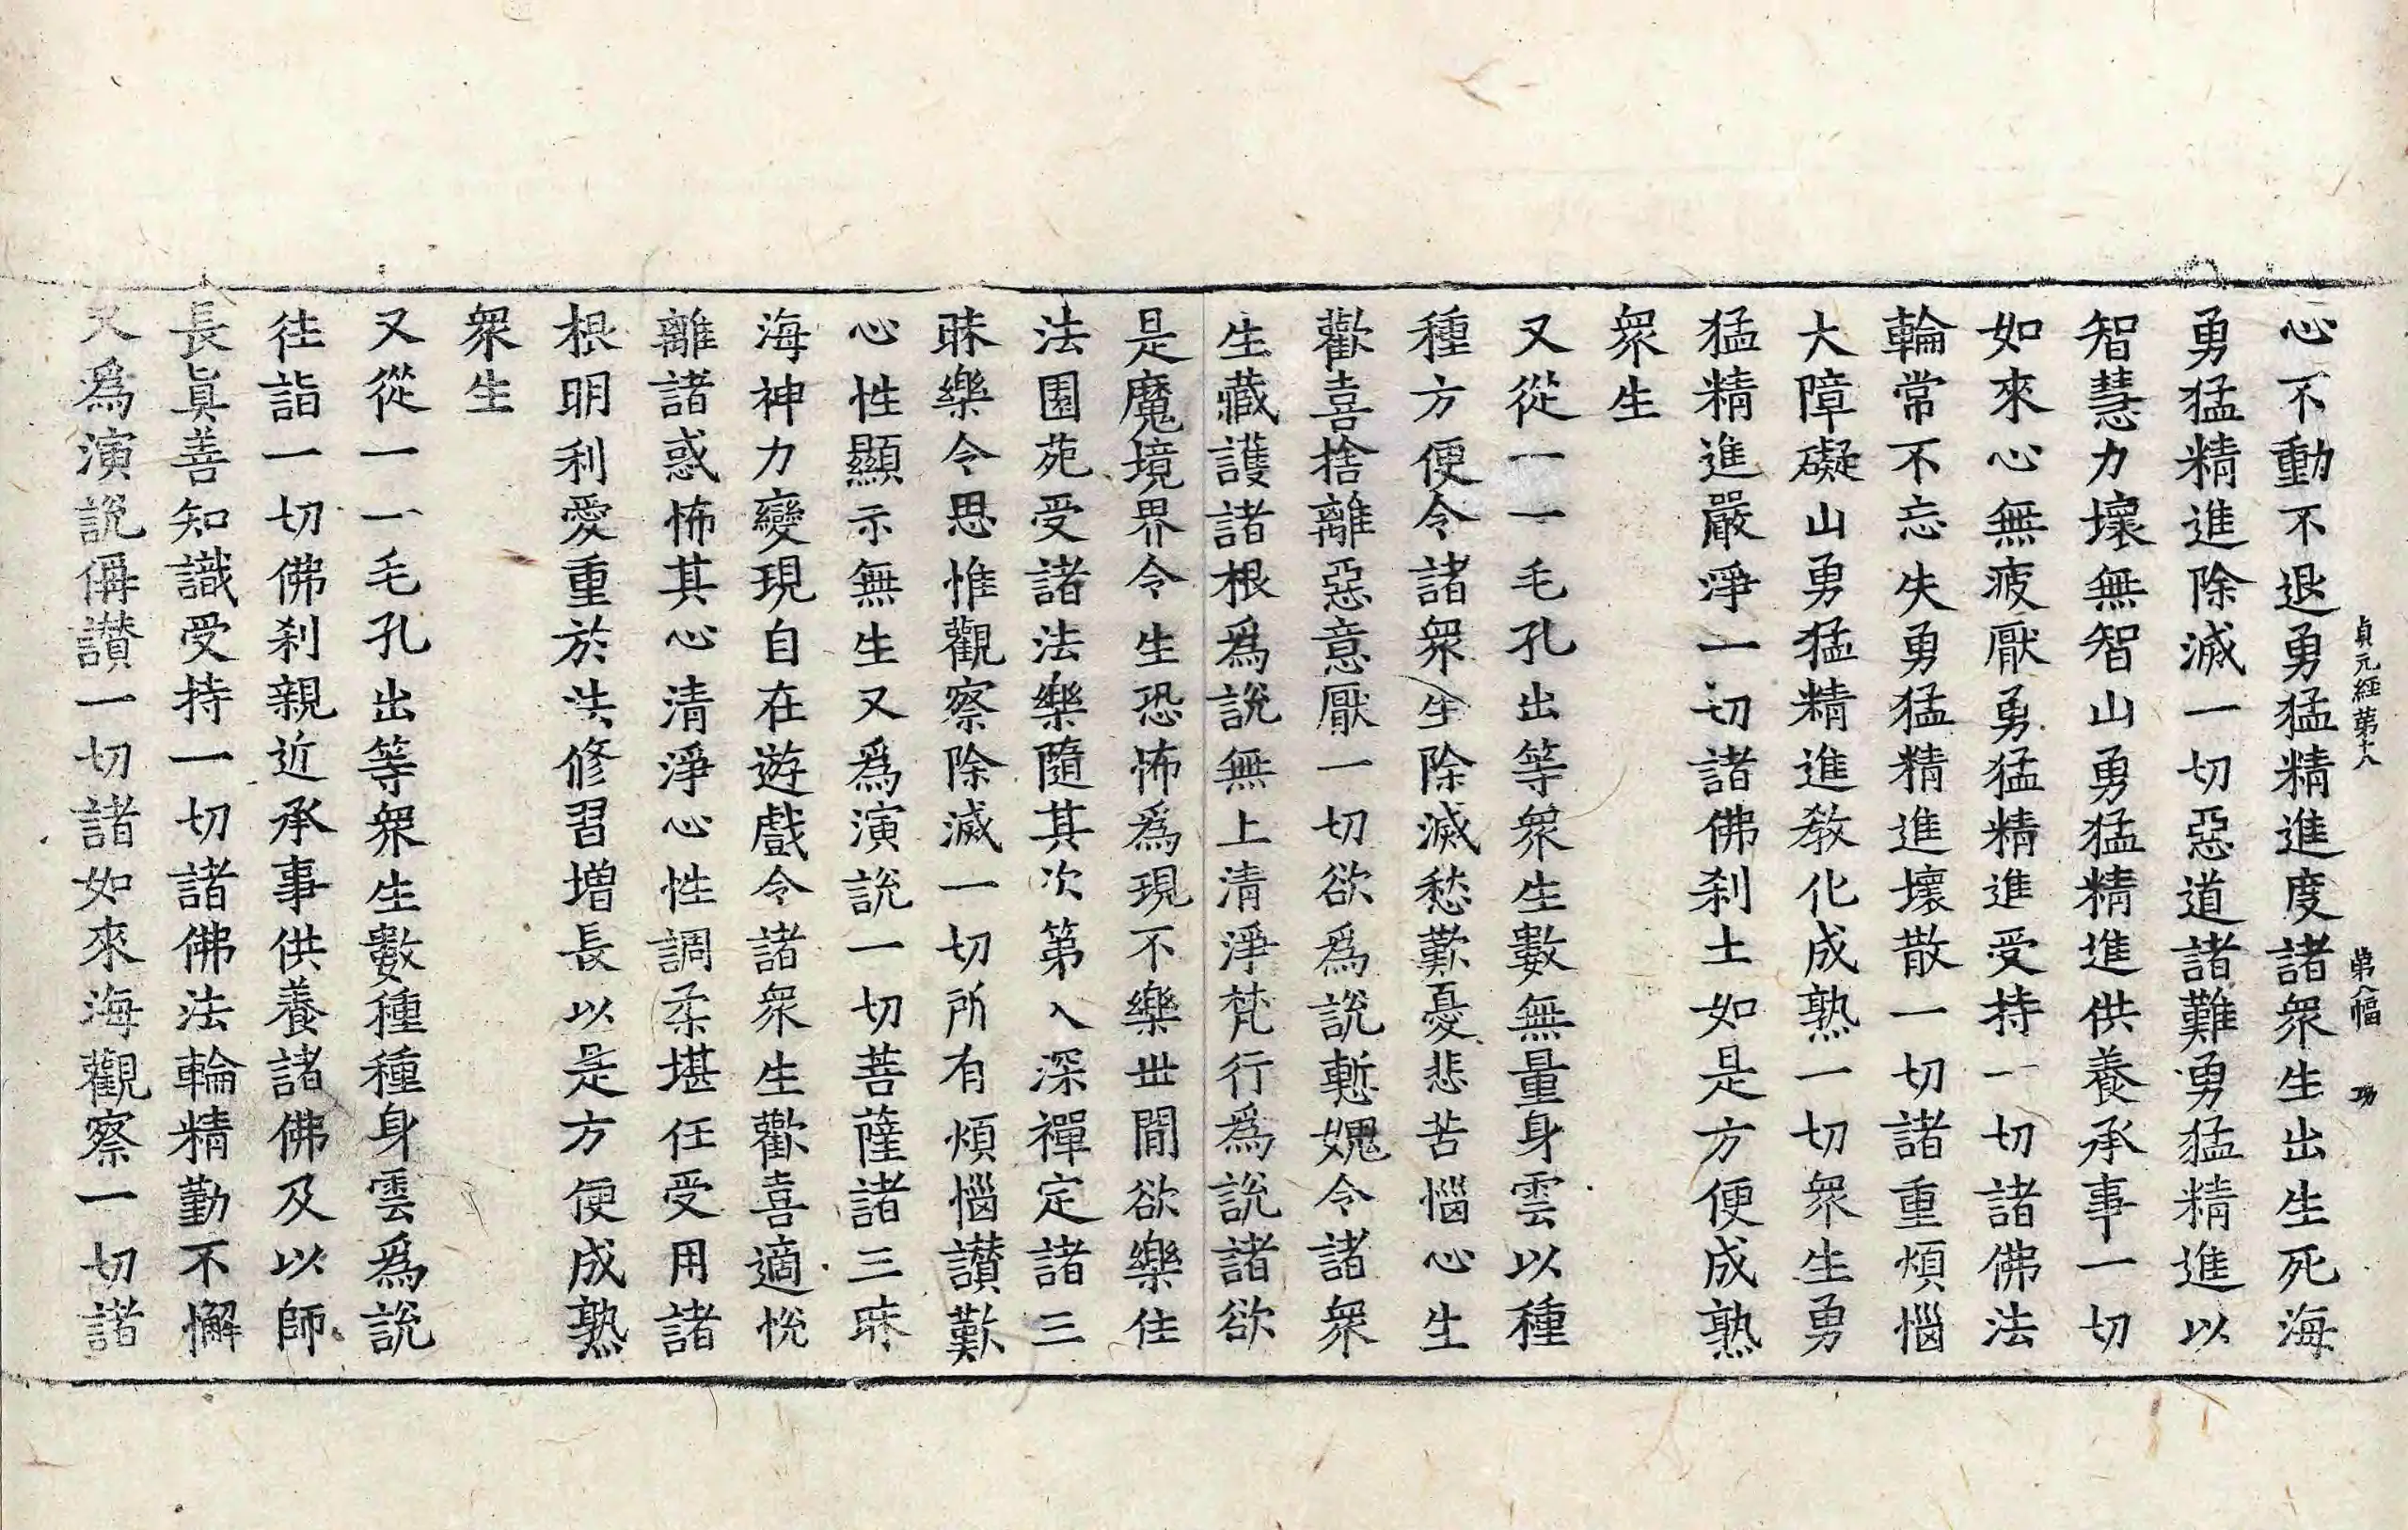 貞元經第十八 第八幅 功
心不動不退勇猛精進度諸衆生出生死海
勇猛精進除滅一切惡道諸難勇猛精進以
智慧力壞無智山勇猛精進供養承事一切
如來心無疲厭勇猛精進受持一切諸佛法
輪常不忘失勇猛精進壞散一切諸重煩惱
大障礙山勇猛精進教化成熟一切衆生勇
猛精進嚴淨一切諸佛刹土如是方便成熟
衆生
又從一一毛孔出等衆生數無量身雲以種
種方便令諸衆生除滅愁歎憂悲苦惱心生
歡喜捨離惡意厭一切欲爲說慙媿令諸衆
生藏護諸根爲說無上清淨梵行爲說諸欲
是魔境界令生恐怖爲現不樂世間欲樂住
法園苑受諸法樂隨其次第入深禪定諸三
昧樂令思惟觀察除滅一切所有煩惱讃歎
心性顯示無生又爲演說一切菩薩諸三昧
海神力變現自在遊戲令諸衆生歡喜適悅
離諸惑怖其心清淨心性調柔堪任受用諸
根明利愛重於法修習增長以是方便成熟
衆生
又從一一毛孔出等衆生數種種身雲爲說
往詣一切佛刹親近承事供養諸佛及以師
長眞善知識受持一切諸佛法輪精勤不懈
又爲演說稱讃一切諸如來海觀察一切諸